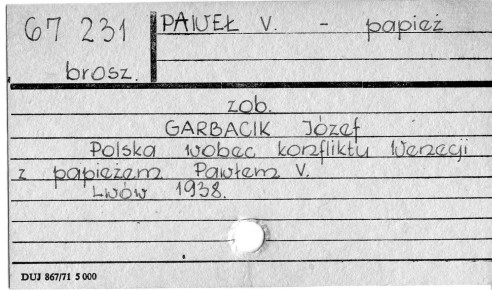 67 231 PAWEŁ V. - papież
brosz.
zob.
GARBACIK Józef
Polska wobec konfliktu Wenecji
z papieżem Pawłem V.
Lwów 1938.
DUJ 867/71 5 000